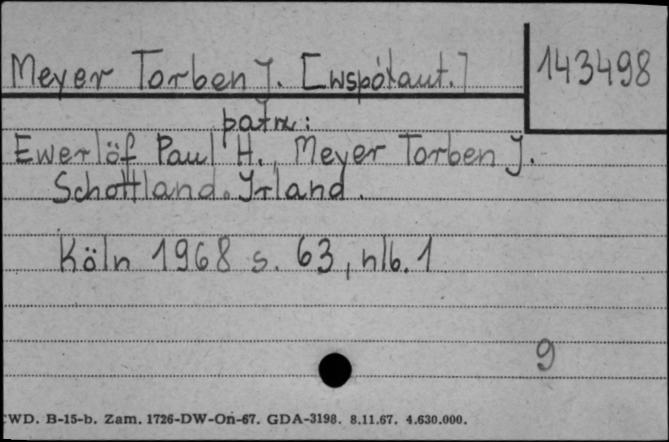 Meyer Torben J. [współaut.]
143498
patrz:
Ewerlöf Paul H., Meyer Torben J.
Schottland. Irland.
Köln 1968 s. 63, nlb. 1
9
WD. B-15-b. Zam. 1726-DW-On-67. GDA-3198. 8.11.67. 4.630.000.